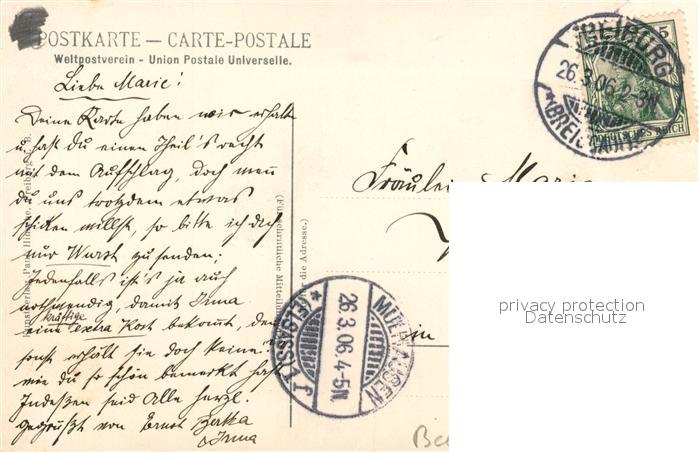 POSTKARTE — CARTE-POSTALE
Weltpostverein - Union Postale Universelle.
Liebe Marie!
Deine Karte haben wir erhalten
u. hast du einen Theil's recht
mit dem Aufschlag, doch wenn
du uns trotzdem etwas
schicken willst, so bitte ich dich
nur Wurst zu senden;
jedenfalls ist's ja auch
nothwendig, damit Irma
kräftige
eine extra Kost bekommt, den
sonst erhält sie doch keine!
wie du so schön bemerkt hast
Indessen seid Alle herzl.
gegrüßt von Ernst
Irma
(Für schriftliche Mitteilungen
die Adresse.)
Fräulein Marie
in
FREIBURG
26.3.06.2-3N.
* (BREISGAU) 1
5
DEUTSCHES REICH
MÜLHAUSEN
26.3.06.4-5N.
* (ELSASS) 1
privacy protection
Datenschutz